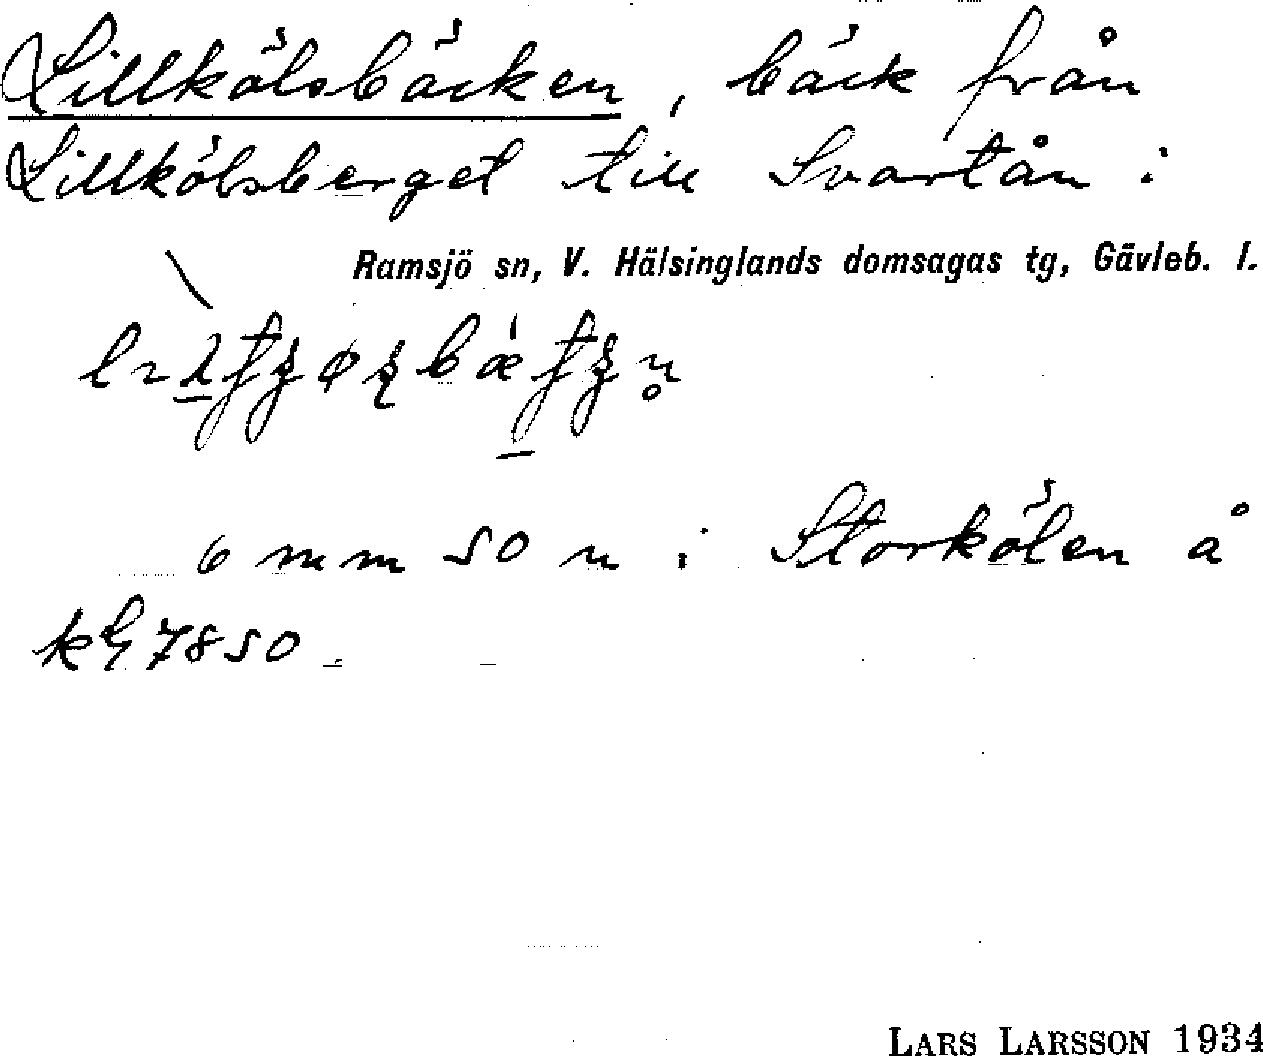 Lillkölsbäcken, bäck från
Lillkölsberget till Svartån i
Ramsjö sn, V. Hälsinglands domsagas tg, Gävleb. l.
6 mm SO n i Storkölen å
kbl 7850.
LARS LARSSON 1934